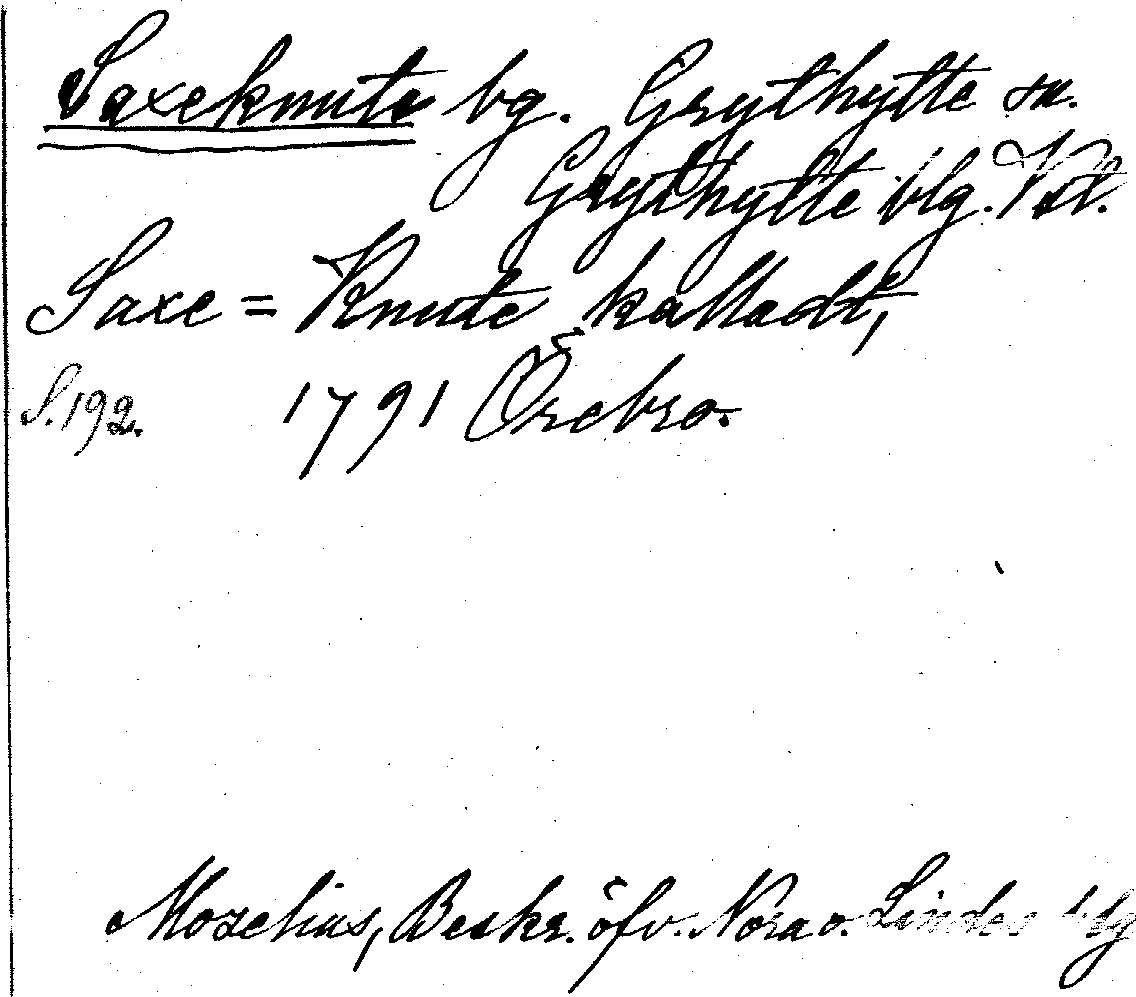 Saxeknute bg. Grythytte sn.
Grythytte blg. Vstl.
Saxe = Knute kalladt,
S. 192. 1791 Örebro.
Mozelius, Beskr. öfv. Nora o. Lindes blg